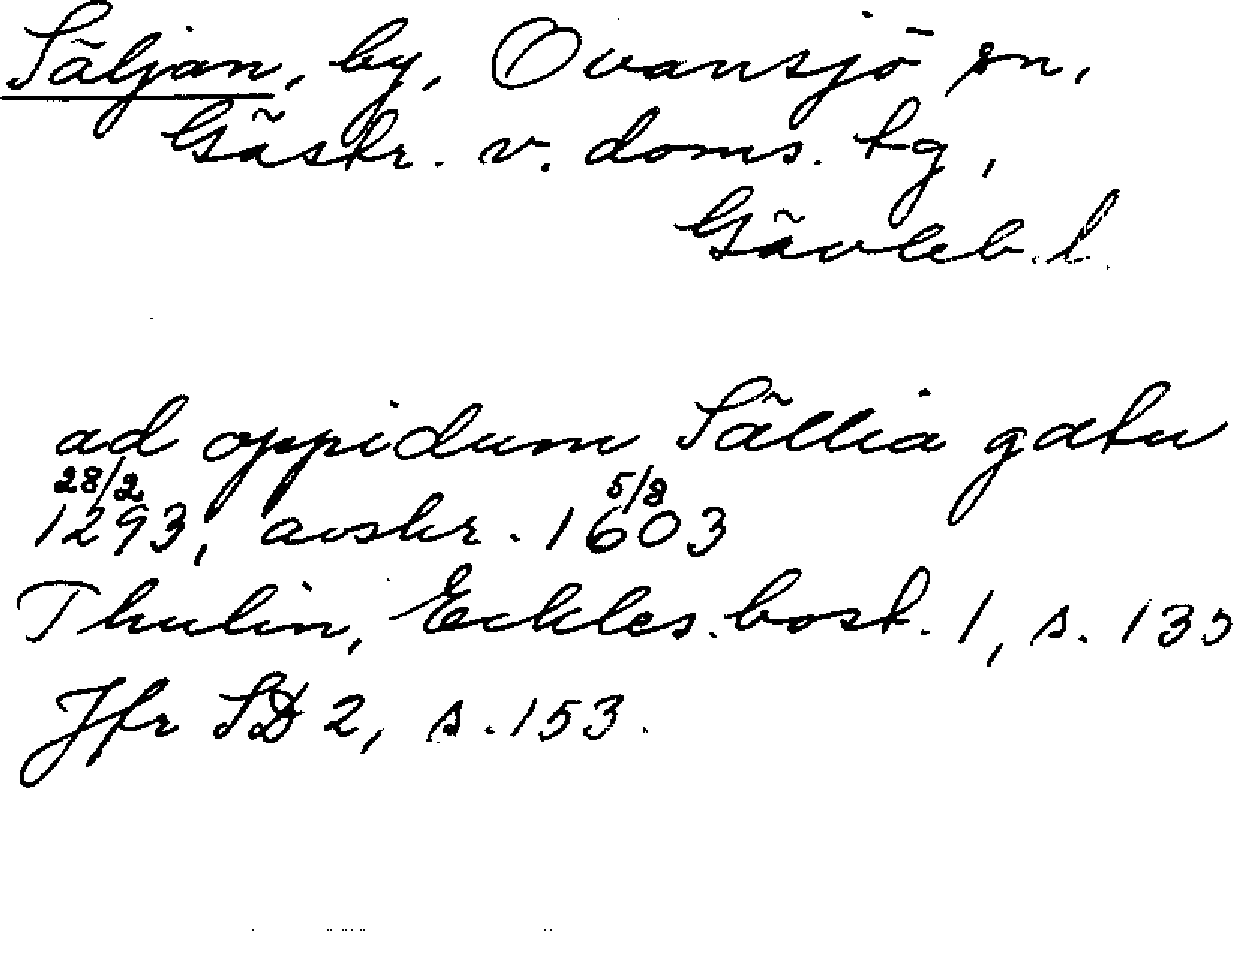 Säljan, by, Ovansjö sn,
Gästr. v. doms. tg,
Gävleb. l.
ad oppidum Sällia gatu
28/2 5/8
1293, avskr. 1603
Thulin, Eckles. bost. 1, s. 135
Jfr SD 2, s. 153.